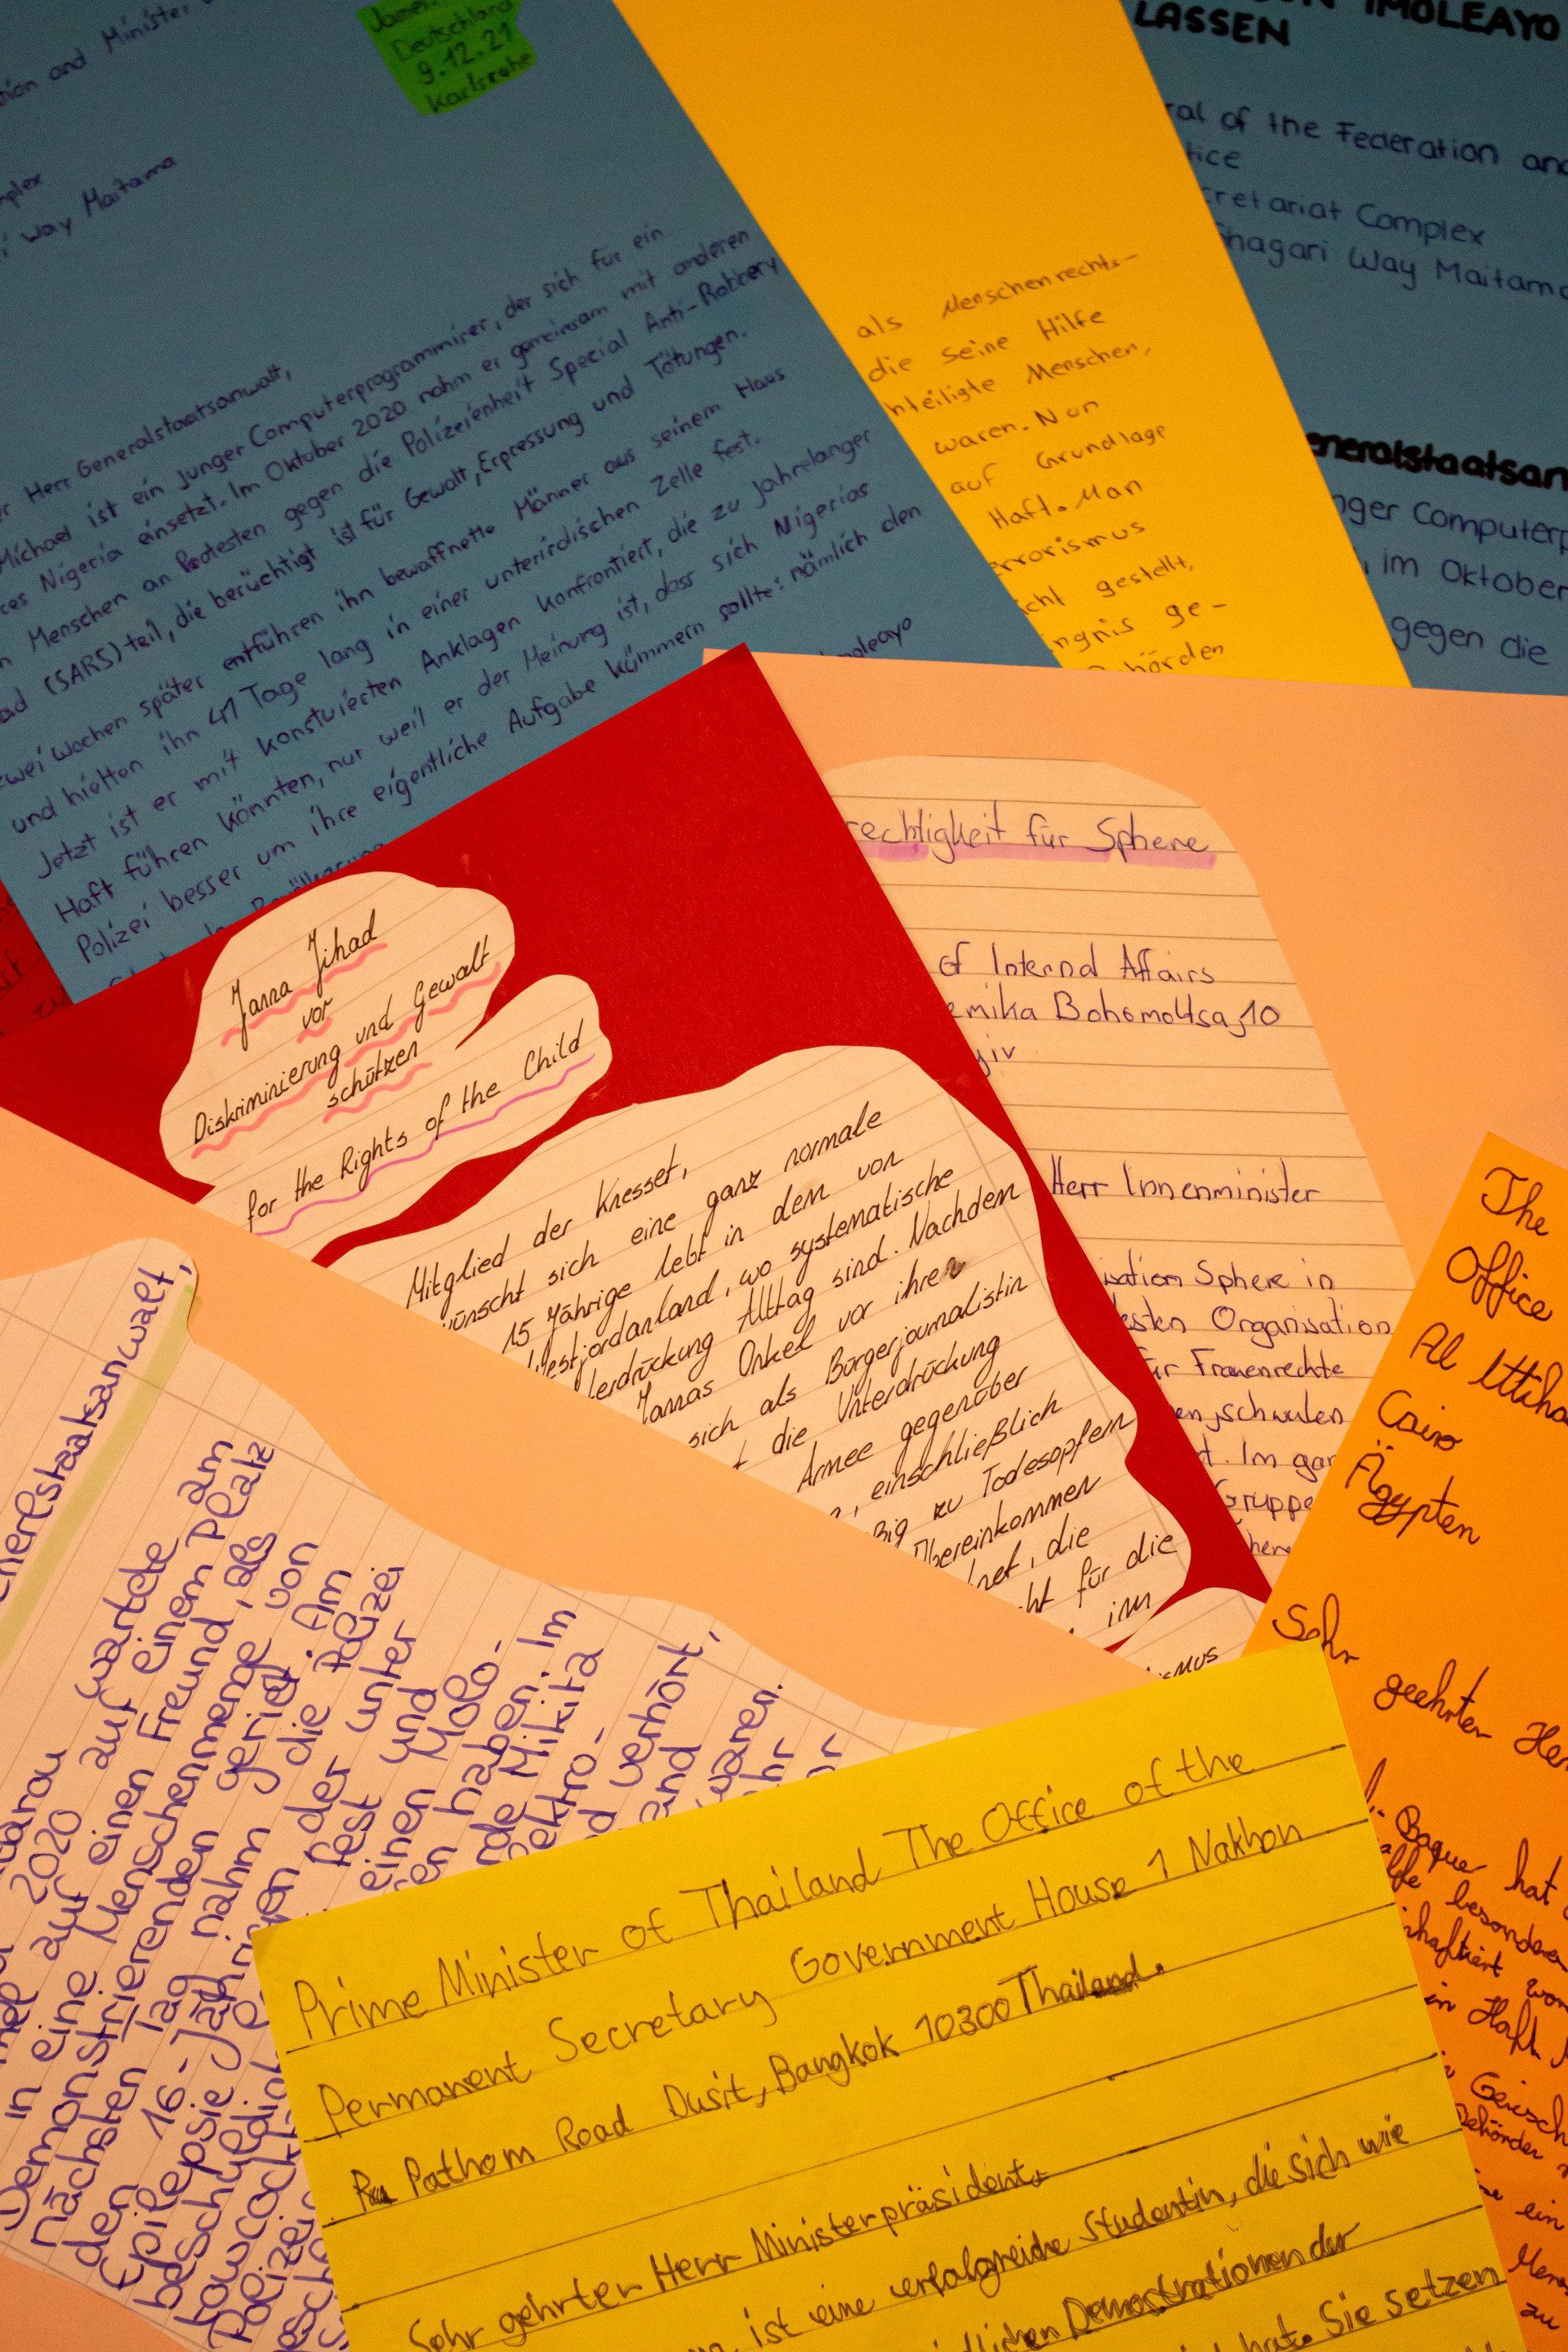 tion and Minister
James
Deutschland
9.12.21
Karlsruhe
mplex
i Way Maitama
r Herr Generalstaatsanwalt,
Michael ist ein junger Computerprogrammirer, der sich für ein
ces Nigeria einsetzt. Im Oktober 2020 nahm er gemeinsam mit anderen
n Menschen an Protesten gegen die Polizeienheit Special Anti-Robbery
ad (SARS) teil, die berüchtigt ist für Gewalt, Erpressung und Tötungen.
zwei Wochen später entführen ihn bewaffnette Männer aus seinem Haus
und hielten ihn 41 Tage lang in einer unterirdischen Zelle fest.
Jetzt ist er mit konstuierten Anklagen konfrontiert, die zu jahrelanger
Haft führen könnten, nur weil er der Meinung ist, dass sich Nigerias
Polizei besser um ihre eigentliche Aufgabe kümmern sollte: nämlich den
moleayo
als Menschenrechts-
die seine Hilfe
hteiligte Menschen,
waren. Nun
auf Grundlage
Haft. Man
errorismus
icht gestellt,
ngnis ge-
hörden
IMOLEAYO
LASSEN
ral of the Federation and
tice
cretariat Complex
Shagari Way Maitama
eneralstaatsan
nger Computerp
im Oktober
gegen die
Janna Jihad
vor
Diskriminierung und Gewalt
schützen
for the Rights of the Child
Mitglied der Knesset,
wünscht sich eine ganz normale
15 Jährige lebt in dem von
Westjordanland, wo systematische
terdrückung Alltag sind. Nachdem
Jannas Onkel vor ihren
sich als Bürgerjournalistin
t die Unterdrückung
Armee gegenüber
, einschließlich
ßig zu Todesopfern
Übereinkommen
net, die
ht für die
im
ismus
rechtigkeit für Sphere
of Internal Affairs
emika Bohomoltsa,10
yiv
Herr Innenminister
isation Sphere in
esten Organisation
ür Frauenrechte
en, schwulen
t. Im gar
Gruppe
here
The
Office
Al Ittiha
Cairo
Ägypten
Sehr geehrter Her
Baque hat
lfe besondere
nhaftiert wor
in Haft
Gerich
Behörden
ein
Mens
zu
enerlstaatsanwalt,
2020 auf wartete am
auf einen Freund, als
in eine Menschenmenge von
Demonstrierenden geriet. Am
nächsten Tag nahm die Polizei
den 16-Jährigen der unter
Epilepsie fest und
beschuldigt einen Molo-
haben. Im
Mikita
ektro-
nd verhört,
and
waren.
Prime Minister of Thailand The Office of the
Permanent Secretary Government House 1 Nakhon
Pathom Road Dusit, Bangkok 10300 Thailand.
Sehr gehrter Herr Ministerpräsident,
ist eine erfolgreiche Studentin, die sich wie
dlichen Demostrationen der
hat. Sie setzen